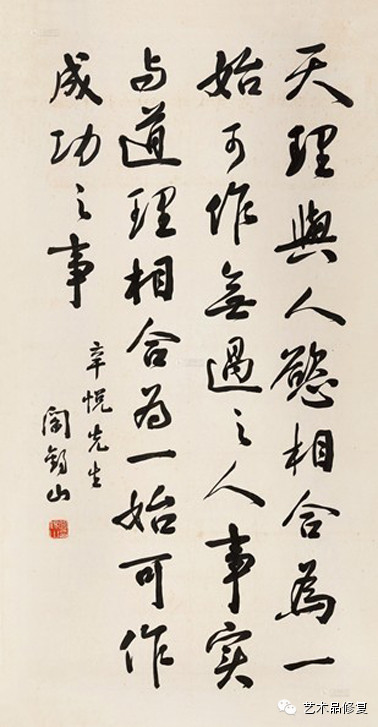 天理與人慾相合為一
始可作無過之人事实
与道理相合为一始可作
成功之事
辛悦先生
閻錫山
艺术品修复